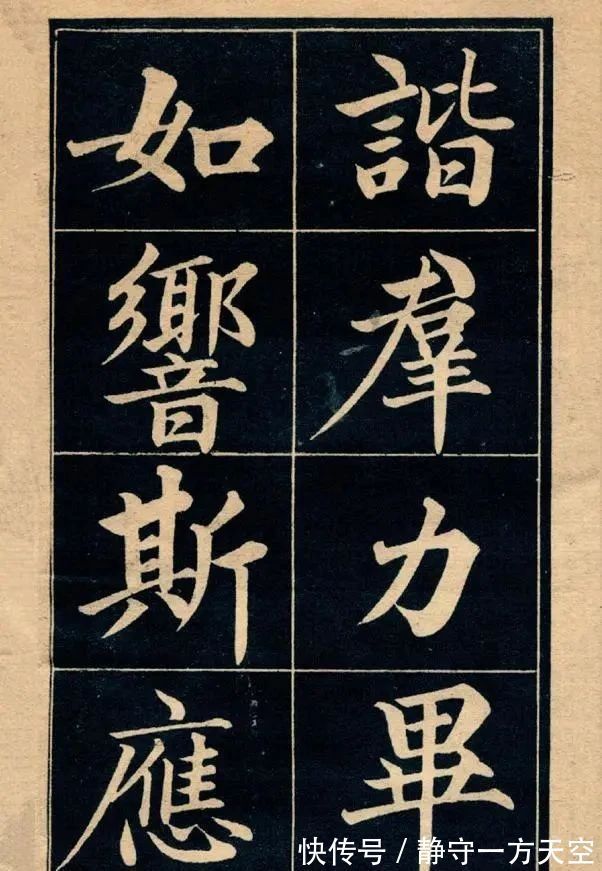 諧羣力畢
如響斯應
快传号／静守一方天空